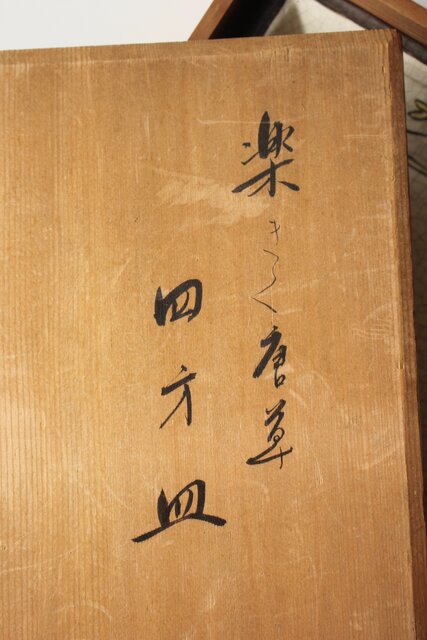 楽きく唐草
四方皿